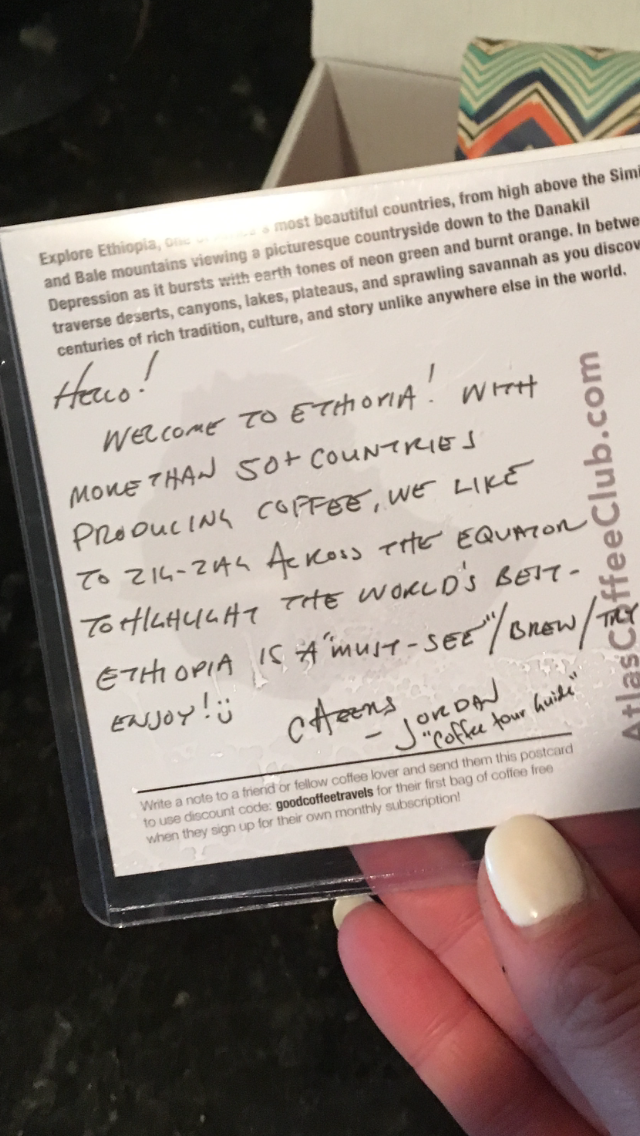 Explore Ethiopia, one most beautiful countries, from high above the Simi
and Bale mountains viewing a picturesque countryside down to the Danakil
Depression as it bursts with earth tones of neon green and burnt orange. In betwe
traverse deserts, canyons, lakes, plateaus, and sprawling savannah as you discov
centuries of rich tradition, culture, and story unlike anywhere else in the world.
HELLO!
WELCOME TO ETHIOPIA! WITH
MORE THAN 50+ COUNTRIES
PRODUCING COFFEE, WE LIKE
TO ZIG-ZAG ACROSS THE EQUATOR
TO HIGHLIGHT THE WORLD'S BEST-
ETHIOPIA IS A "MUST-SEE"/BREW/TRY
ENJOY! :)
CHEERS
- JORDAN
"Coffee tour Guide"
AtlasCoffeeClub.com
Write a note to a friend or fellow coffee lover and send them this postcard
to use discount code: goodcoffeetravels for their first bag of coffee free
when they sign up for their own monthly subscription!